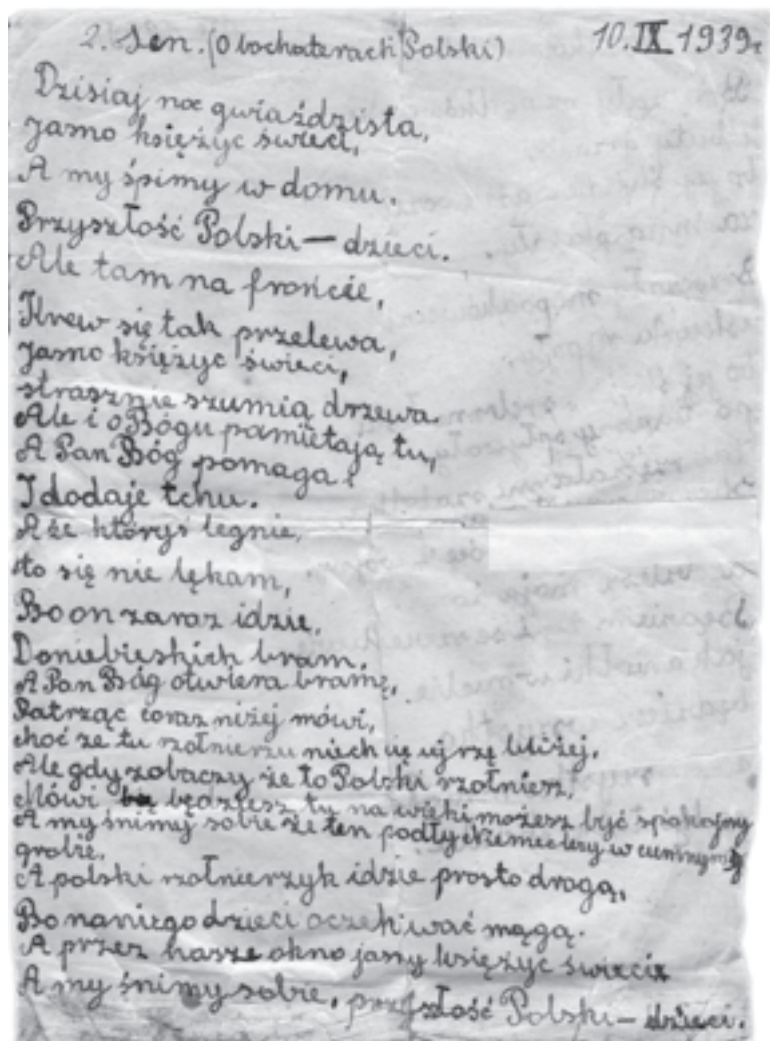 2. Sen. (O bochaterach Polski) 10.IX.1939r
Dzisiaj noc gwiaździsta,
Jasno księżyc świeci,
A my śpimy w domu.
Przyszłość Polski — dzieci.
Ale tam na froncie,
Krew się tak przelewa,
Jasno księżyc świeci,
strasznie szumią drzewa.
Ale i o Bogu pamiętają tu,
A Pan Bóg pomaga!
I dodaje tchu.
A że któryś legnie,
to się nie lękam,
Bo on zaraz idzie,
Doniebieskich bram.
A Pan Bóg otwiera bramę,
Patrząc coraz niżej mówi,
choć ze tu rzołnierzu niech cię ujrzę bliżej.
Ale gdy zobaczy że to Polski rzołnierz,
Mówi będziesz tu na wieki możesz być spokojny
A my śnimy sobie że ten podły niemiec leży w ciemnym
grobie.
A polski rzołnierzyk idzie prosto drogą,
Bo naniego dzieci oczekiwać mągą.
A przez nasze okno jasny księżyc świeci
A my śnimy sobie, przyszłość Polski — dzieci.